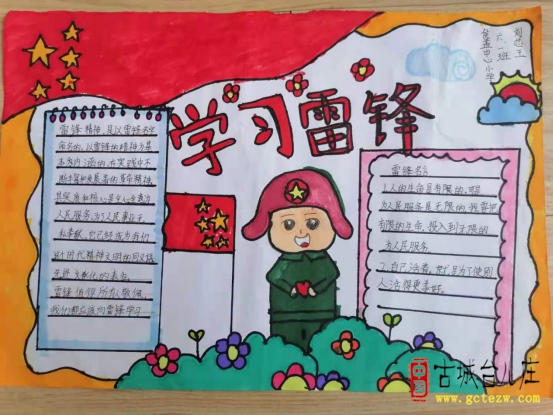 学习雷锋
刘芯玉
六.1班
中心小学
雷锋精神,是以雷锋名字
命名的,以雷锋的精神为基
本内涵的,在实践中不
断丰富和发展着的革命精神,
其实质和核心是全心全意为
人民服务,为了人民事业无
私奉献,它已经成为我们
时代精神文明的同义语,
先进文化的表征。
雷锋值得所有人敬佩,
我们都应该向雷锋学习。
雷锋名言
1、人的生命是有限的,可是
为人民服务是无限的,我要把
有限的生命,投入到无限的
为人民服务
2、自己活着,就是为了使别
人活得更美好。
中国
古城台儿庄
www.gctezw.com